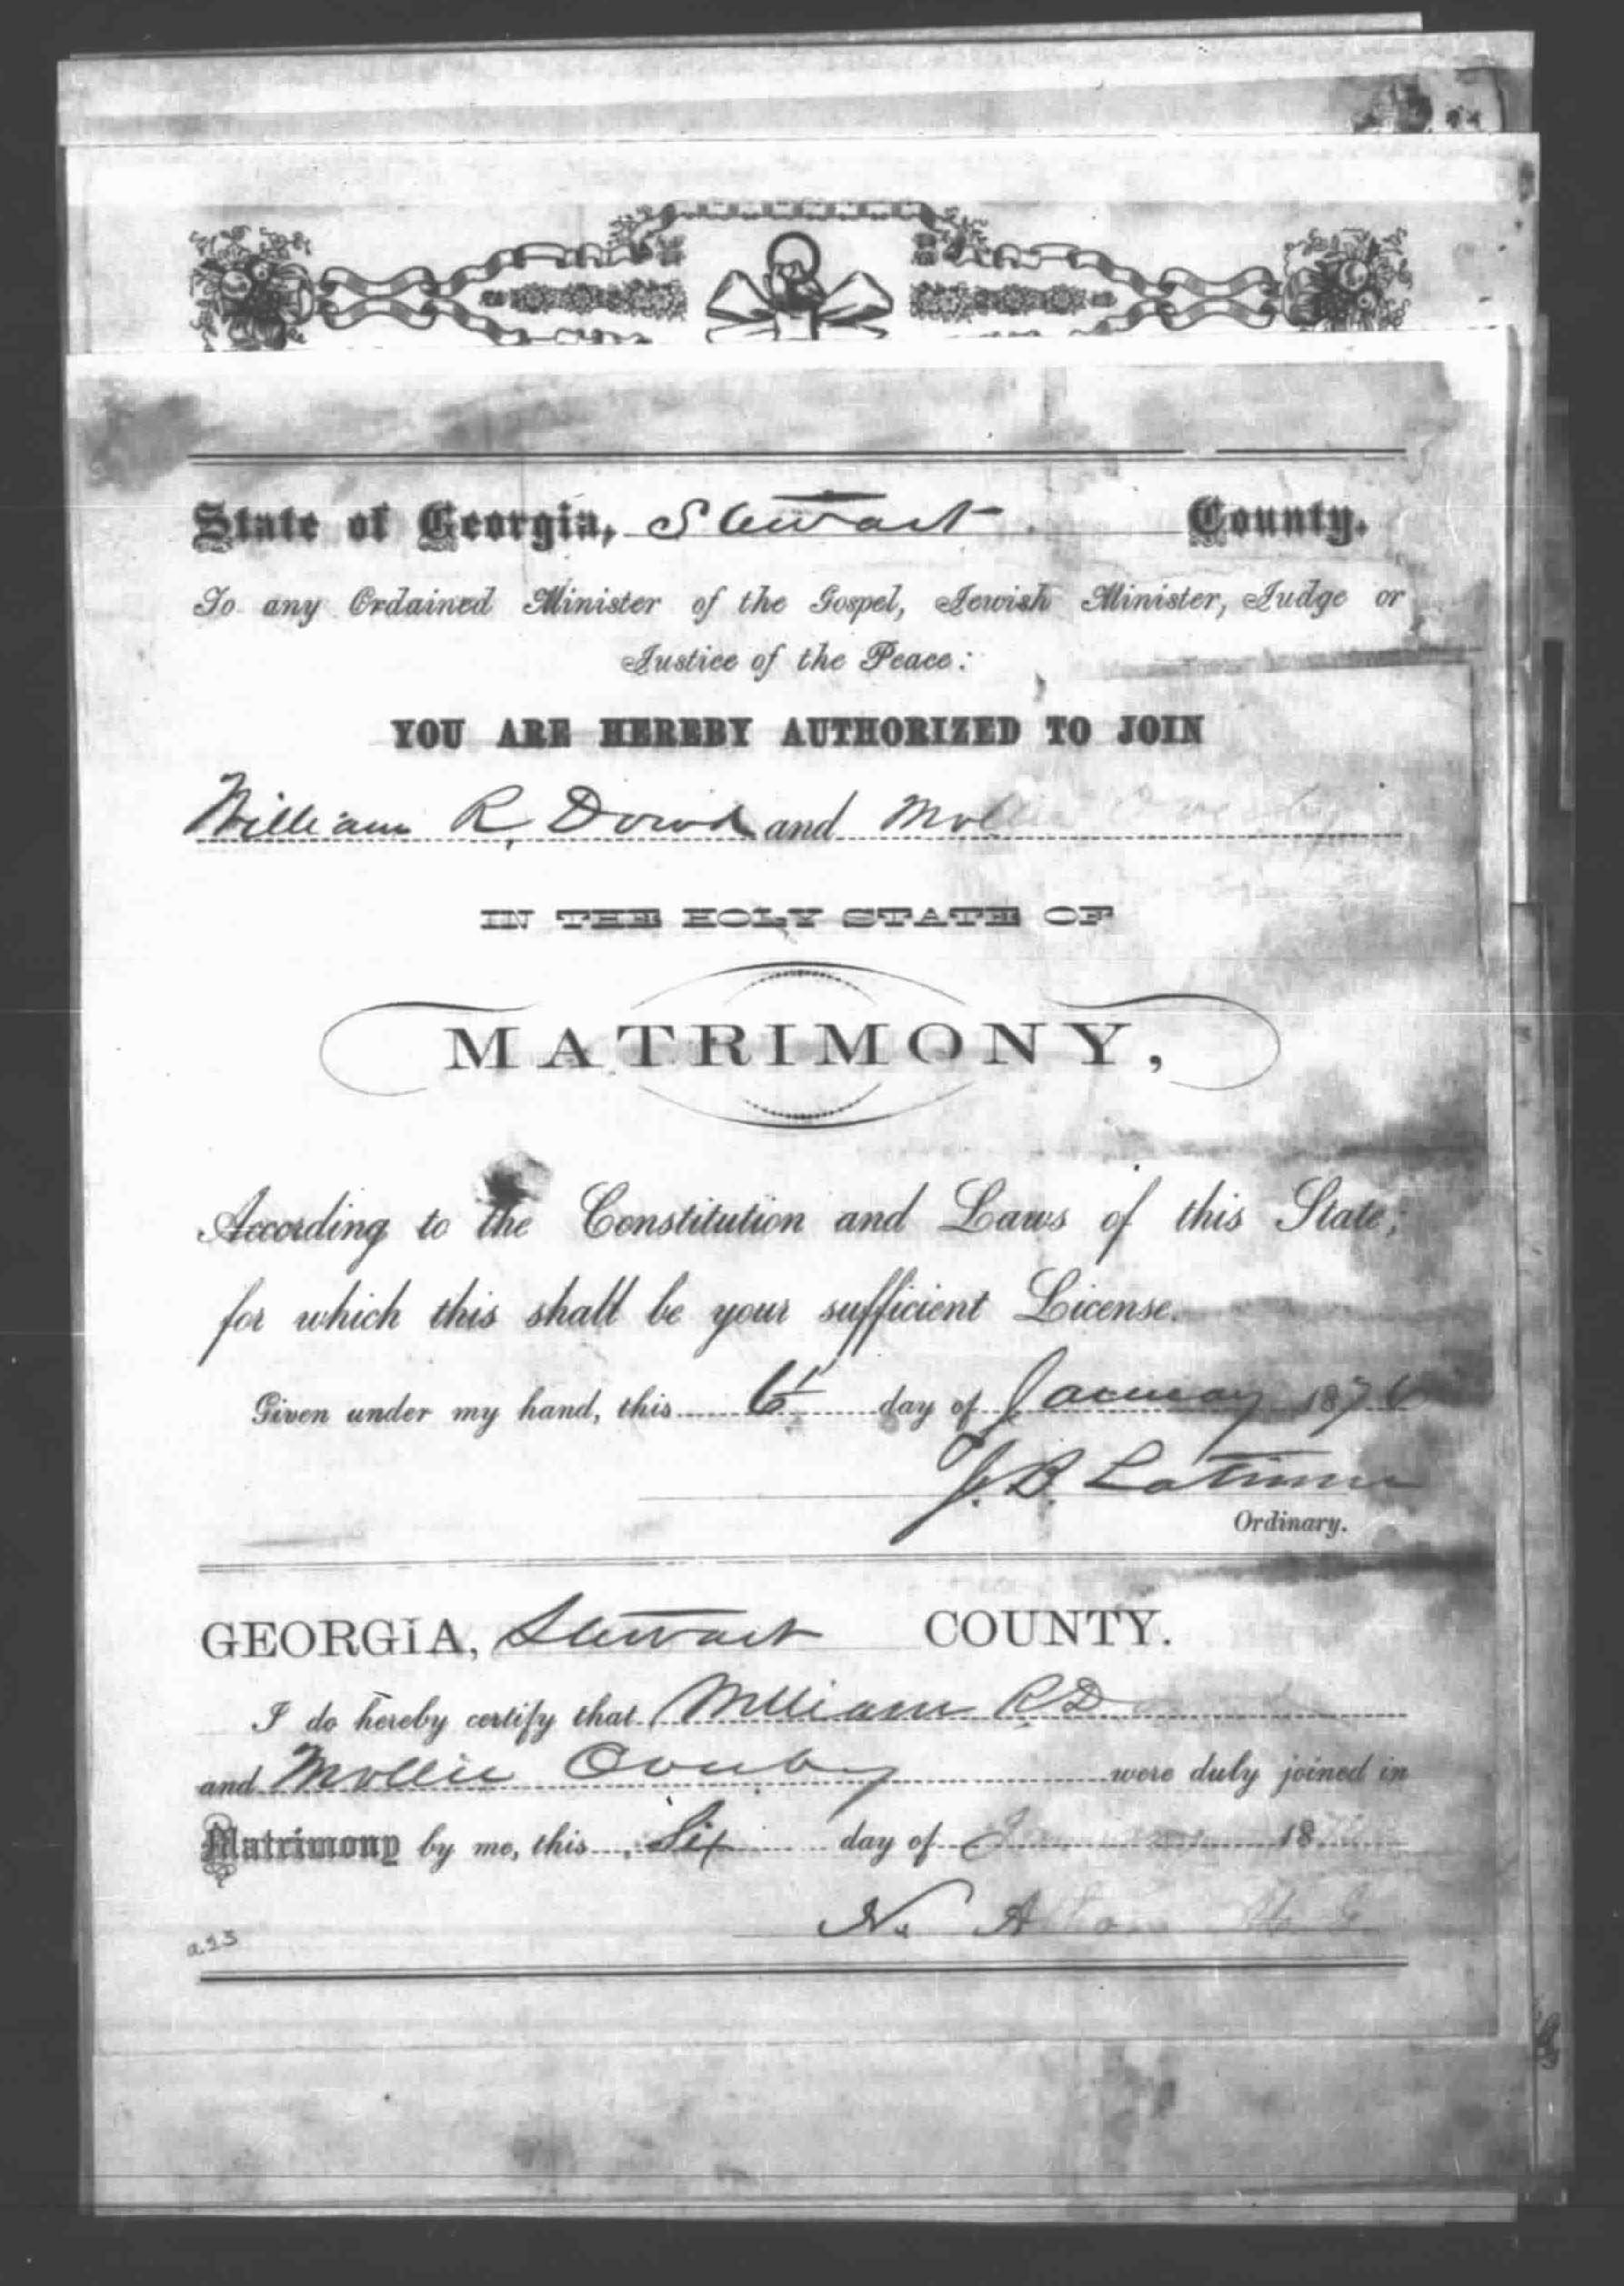 State of Georgia, Stewart County.
To any Ordained Minister of the Gospel, Jewish Minister, Judge or
Justice of the Peace:
YOU ARE HEREBY AUTHORIZED TO JOIN
William R. Dowd and Mollie
IN THE HOLY STATE OF
MATRIMONY,
According to the Constitution and Laws of this State;
for which this shall be your sufficient License.
Given under my hand, this 6t day of January 1876
J. B. Latimer
Ordinary.
GEORGIA, Stewart COUNTY.
I do hereby certify that William R. D
and Mollie were duly joined in
Matrimony by me, this Six day of 18
N. A
a.23